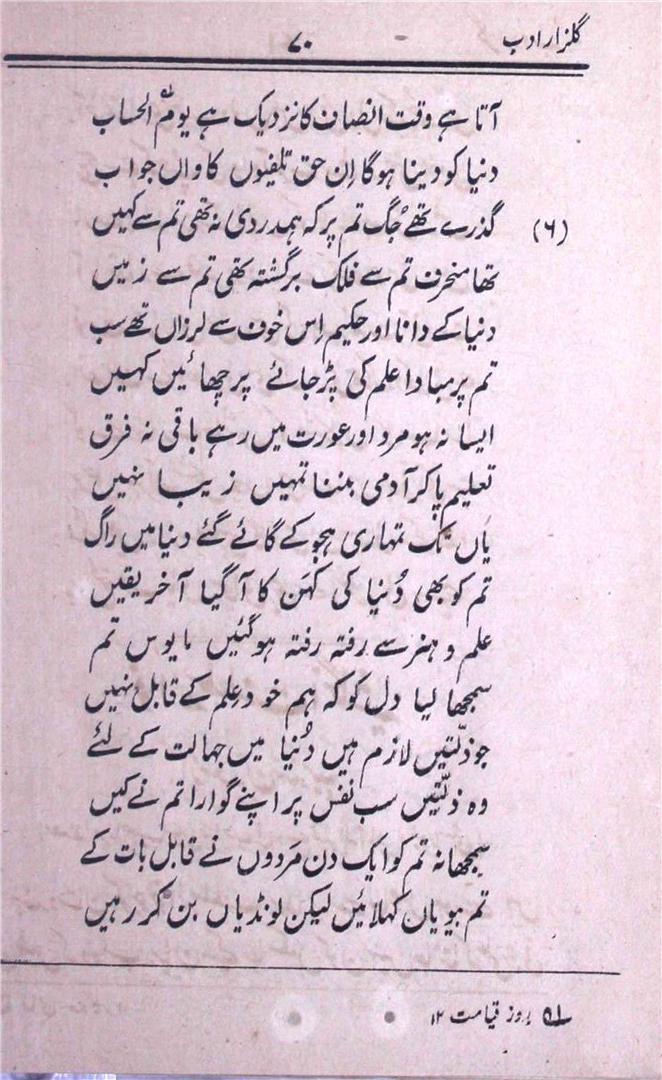 گلزار ادب
۷۰
آتا ہے وقت انصاف کا نزدیک ہے یوم الحساب
دنیا کو دینا ہوگا اِن حق تلفیوں کا واں جواب
(۶) گذرے تھے جُگ تم پر کہ ہمدردی نہ تھی تم سے کہیں
تھا منحرف تم سے فلک برگشتہ تھی تم سے زمیں
دنیا کے دانا اور حکیم اِس خوف سے لرزاں تھے سب
تم پر مبادا علم کی پڑجائے پرچھائیں کہیں
ایسا نہ ہو مرد اور عورت میں رہے باقی نہ فرق
تعلیم پاکر آدمی بننا تمہیں زیبا نہیں
یاں تک تمہاری ہجو کے گائے گئے دنیا میں راگ
تم کو بھی دُنیا کی کہَن کا آگیا آخر یقیں
علم و ہنر سے رفتہ رفتہ ہوگئیں مایوس تم
سمجھا لیا دل کو کہ ہم خود عِلم کے قابل نہیں
جو ذلّتیں لازم ہیں دُنیا میں جہالت کے لئے
وہ ذلّتیں سب نفس پر اپنے گوارا تم نے کیں
سمجھا نہ تم کو ایک دن مَردوں نے قابل بات کے
تم بیویاں کہلائیں لیکن لونڈیاں بن کر رہیں
۱ے روز قیامت ۱۲